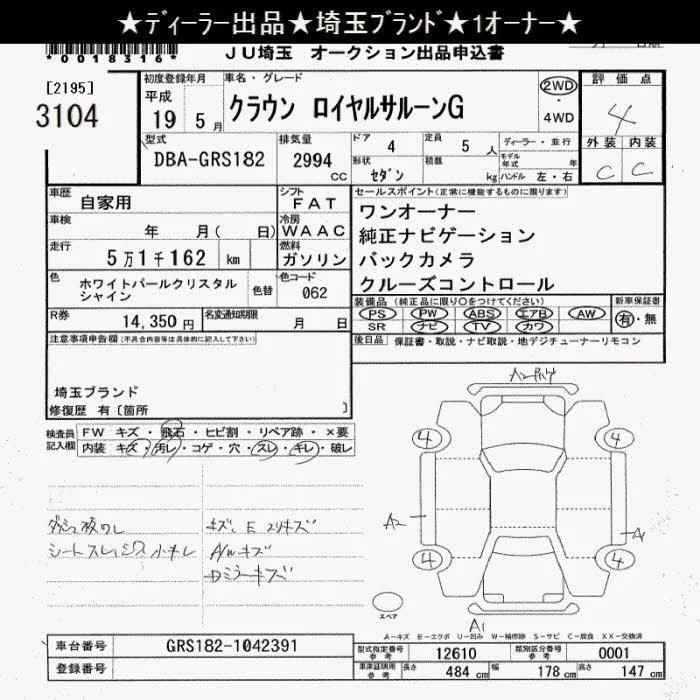 ★ディーラー出品★埼玉ブランド★1オーナー★
*00018316*
JU埼玉 オークション出品申込書
[2195]
3104
初度登録年月
平成
19 5月
車名・グレード
クラウン ロイヤルサルーンG
2WD
・
4WD
評価点
4
外装 内装
C C
型式
DBA-GRS182
排気量
2994
CC
ドア 4
定員 5 人
形状 セダン
積載 kg
ディーラー・並行
モデル年式 年
ハンドル 左・右
車歴 自家用
シフト FAT
車検 年 月( 日)
冷房 WAAC
走行 5万1千162 km
燃料 ガソリン
色 ホワイトパールクリスタル
シャイン
色替
色コード 062
R券 14,350円
名変通知期限 月 日
セールスポイント(正常に機能するものに限ります)
ワンオーナー
純正ナビゲーション
バックカメラ
クルーズコントロール
装備品 (純正品に限り○をつけてください)
PS PW ABS エアB AW
SR ナビ TV カワ
新車保証書
有・無
後日品 保証書・取説・ナビ取説・地デジチューナーリモコン
注意事項申告欄(不具合内容等は具体的に記入して下さい)
埼玉ブランド
修復歴 有〔箇所 〕
検査員
記入欄
FW キズ・飛石・ヒビ割・リペア跡・×要
内装 キズ・汚レ・コゲ・穴・スレ・キレ・破レ
キズ、E
A/Wキズ
ミラーキズ
A2
4 4
A2 A
4 4
スペア
A1
A-キズ E-エクボ U-凹み W-補修跡 S-サビ C-腐食 XX-交換済
車台番号 GRS182-1042391
登録番号
型式指定番号
参考
12610
類別区分番号
参考
0001
車庫証明用
参考
長さ 484 cm
幅 178 cm
高さ 147 cm